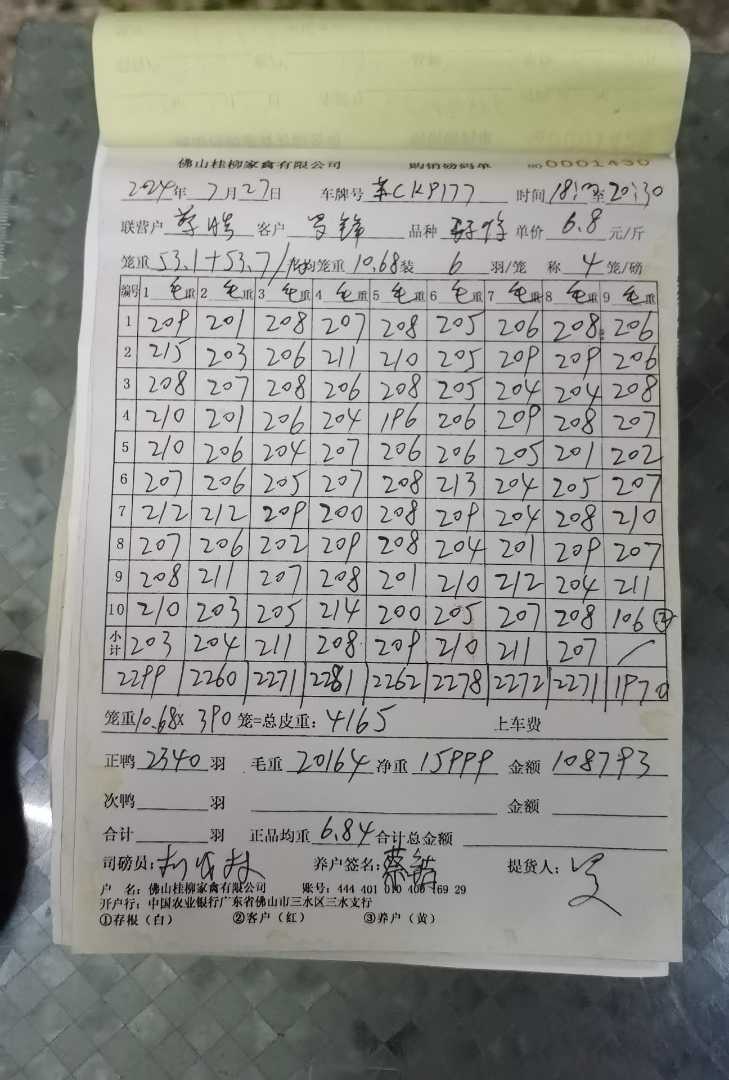 佛山桂柳家禽有限公司 购销磅码单 №0001430
2024年7月27日 车牌号 CK8177 时间 18: 至20:30
联营户 蔡 客户 锋 品种 单价 6.8 元/斤
笼重 53.1+53.7/ 均笼重 10.68 装 6 羽/笼 称 4 笼/磅
编号 1 毛重 2 毛重 3 毛重 4 毛重 5 毛重 6 毛重 7 毛重 8 毛重 9 毛重
1 209 201 208 207 208 205 206 208 206
2 215 203 206 211 210 205 209 209 206
3 208 207 208 206 208 205 204 204 208
4 210 201 206 204 196 206 209 208 207
5 210 206 204 207 206 206 205 201 202
6 207 206 205 207 208 213 204 205 207
7 212 212 209 200 208 209 204 208 210
8 207 206 202 209 208 204 201 209 207
9 208 211 207 208 201 210 212 204 211
10 210 203 205 214 200 205 207 208 106 ②
小计 203 204 211 208 209 210 211 207 /
2299 2260 2271 2281 2262 2278 2272 2271 1970
笼重10.68X 390 笼=总皮重: 4165 上车费
正鸭 2340 羽 毛重 20164 净重 15999 金额 108793
次鸭 羽 金额
合计 羽 正品均重 6.84 合计总金额
司磅员: 养户签名: 蔡 提货人:
户 名: 佛山桂柳家禽有限公司 账号: 444 401 010 400 169 29
开户行: 中国农业银行广东省佛山市三水区三水支行
①存根（白） ②客户（红） ③养户（黄）